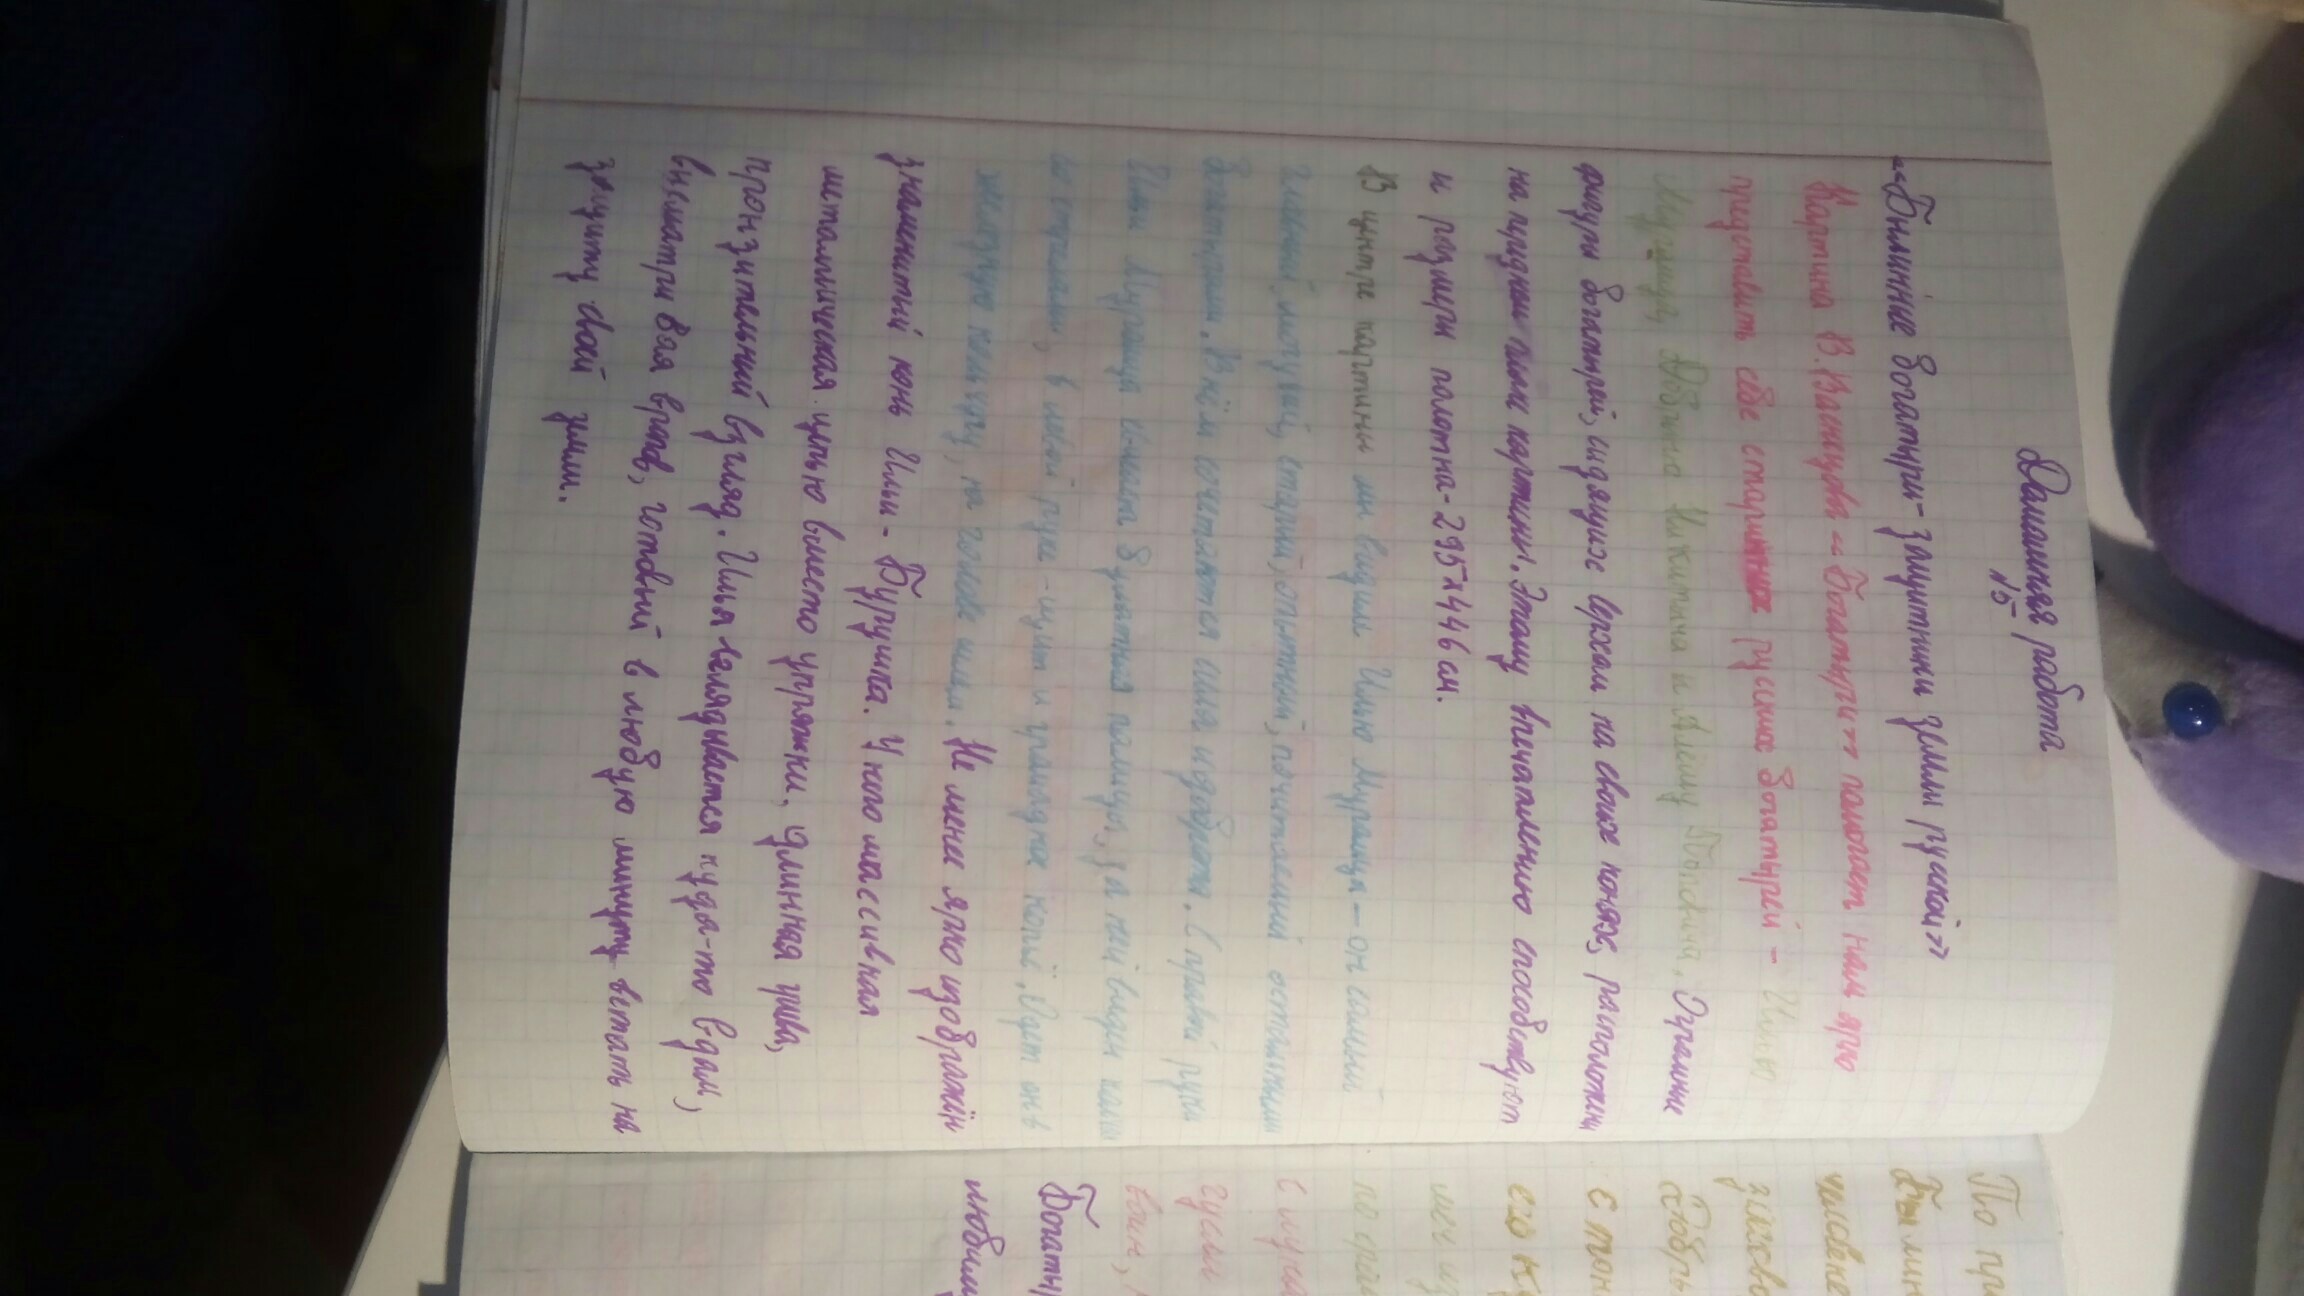 Домашняя работа
№5
«Былинные богатыри - защитники земли русской»
Картина В. Васнецова «Богатыри» помогает нам ярко
представить себе старинных русских богатырей - Илью
Муромца, Добрыню Никитича и Алёшу Поповича. Огромные
фигуры богатырей, сидящих верхом на своих конях, расположены
на переднем плане картины. Этому впечатлению способствуют
и размеры полотна - 295х446 см.
В центре картины мы видим Илью Муромца - он самый
главный, могучий, старший, опытный, почитаемый остальными
богатырями. В нём сочетается сила и доброта. В правой руке
Ильи Муромца имеется булатная палица, за ней виден колчан
со стрелами, в левой руке - щит и длинное копьё. Одет он в
железную кольчугу, на голове шлем. Не менее ярко изображён
знаменитый конь Ильи - Бурушка. У него массивная
металлическая цепью вместо упряжки, длинная грива,
пронзительный взгляд. Илья вглядывается куда-то вдаль,
высматривая врагов, готовый в любую минуту встать на
защиту своей земли.
По пр
былин
человече
его к
с мура
гусли
воин,
Богаты
любим